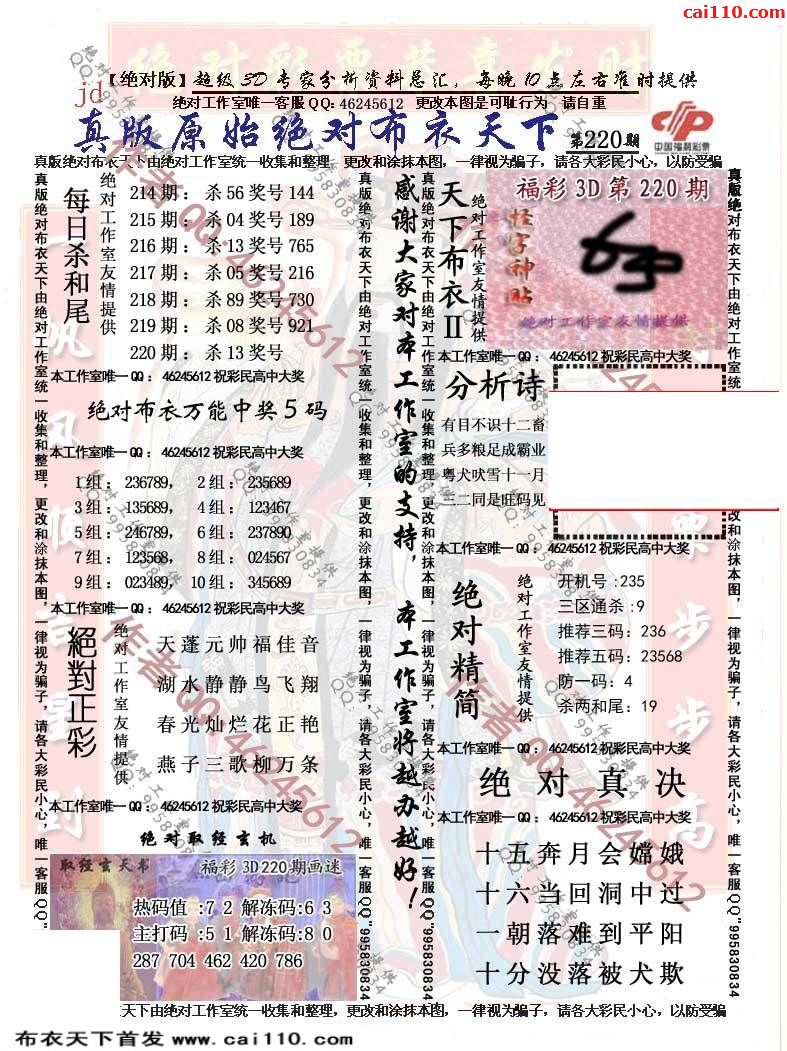 cai110.com
绝对彩票共享发财
【绝对版】超级3D专家分析资料总汇,每晚10点左右准时提供
jd
绝对工作室唯一客服QQ:46245612 更改本图是可耻行为 请自重
真版原始绝对布衣天下 第220期
中国福利彩票
真版绝对布衣天下由绝对工作室统一收集和整理,更改和涂抹本图,一律视为骗子,请各大彩民小心,以防受骗
真版绝对布衣天下由绝对工作室统一收集和整理,更改和涂抹本图,一律视为骗子,请各大彩民小心,唯一客服QQ"995830834
每日杀和尾
绝对工作室友情提供
214期:杀56奖号144
215期:杀04奖号189
216期:杀13奖号765
217期:杀05奖号216
218期:杀89奖号730
219期:杀08奖号921
220期:杀13奖号
本工作室唯一QQ:46245612祝彩民高中大奖
绝对布衣万能中奖5码
本工作室唯一QQ:46245612祝彩民高中大奖
1组:236789, 2组:235689
3组:135689, 4组:123467
5组:246789, 6组:237890
7组:123568, 8组:024567
9组:023489, 10组:345689
本工作室唯一QQ:46245612祝彩民高中大奖
絕對正彩
绝对工作室友情提供
天蓬元帅福佳音
湖水静静鸟飞翔
春光灿烂花正艳
燕子三歌柳万条
本工作室唯一QQ:46245612祝彩民高中大奖
绝对取经玄机
取经玄天书
福彩3D220期画谜
热码值:72解冻码:63
主打码:51解冻码:80
287 704 462 420 786
真版绝对布衣天下由绝对工作室统一收集和整理,更改和涂抹本图,一律视为骗子,请各大彩民小心,唯一客服QQ"995830834
感谢大家对本工作室的支持,本工作室将越办越好!
真版绝对布衣天下由绝对工作室统一收集和整理,更改和涂抹本图,一律视为骗子,请各大彩民小心,唯一客服QQ"995830834
天下布衣II
绝对工作室友情提供
福彩3D第220期
怪字神贴
绝对工作室友情提供
本工作室唯一QQ:46245612祝彩民高中大奖
分析诗
有目不识十二畜
兵多粮足成霸业
粤犬吠雪十一月
三二同是旺码见
本工作室唯一QQ:46245612祝彩民高中大奖
绝对精简
绝对工作室友情提供
开机号:235
三区通杀:9
推荐三码:236
推荐五码:23568
防一码:4
杀两和尾:19
本工作室唯一QQ:46245612祝彩民高中大奖
绝对真决
本工作室唯一QQ:46245612祝彩民高中大奖
十五奔月会嫦娥
十六当回洞中过
一朝落难到平阳
十分没落被犬欺
真版绝对布衣天下由绝对工作室统一收集和整理,更改和涂抹本图,一律视为骗子,请各大彩民小心,唯一客服QQ"995830834
天下由绝对工作室统一收集和整理,更改和涂抹本图,一律视为骗子,请各大彩民小心,以防受骗
布衣天下首发 www.cai110.com